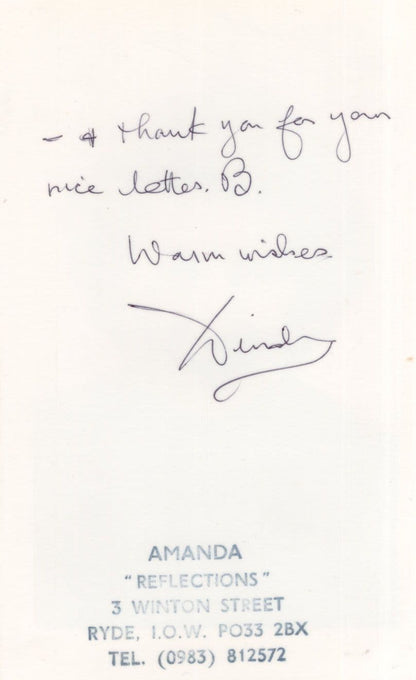 - & thank you for your
nice letter. B.
Warm wishes
AMANDA
"REFLECTIONS"
3 WINTON STREET
RYDE, I.O.W. PO33 2BX
TEL. (0983) 812572